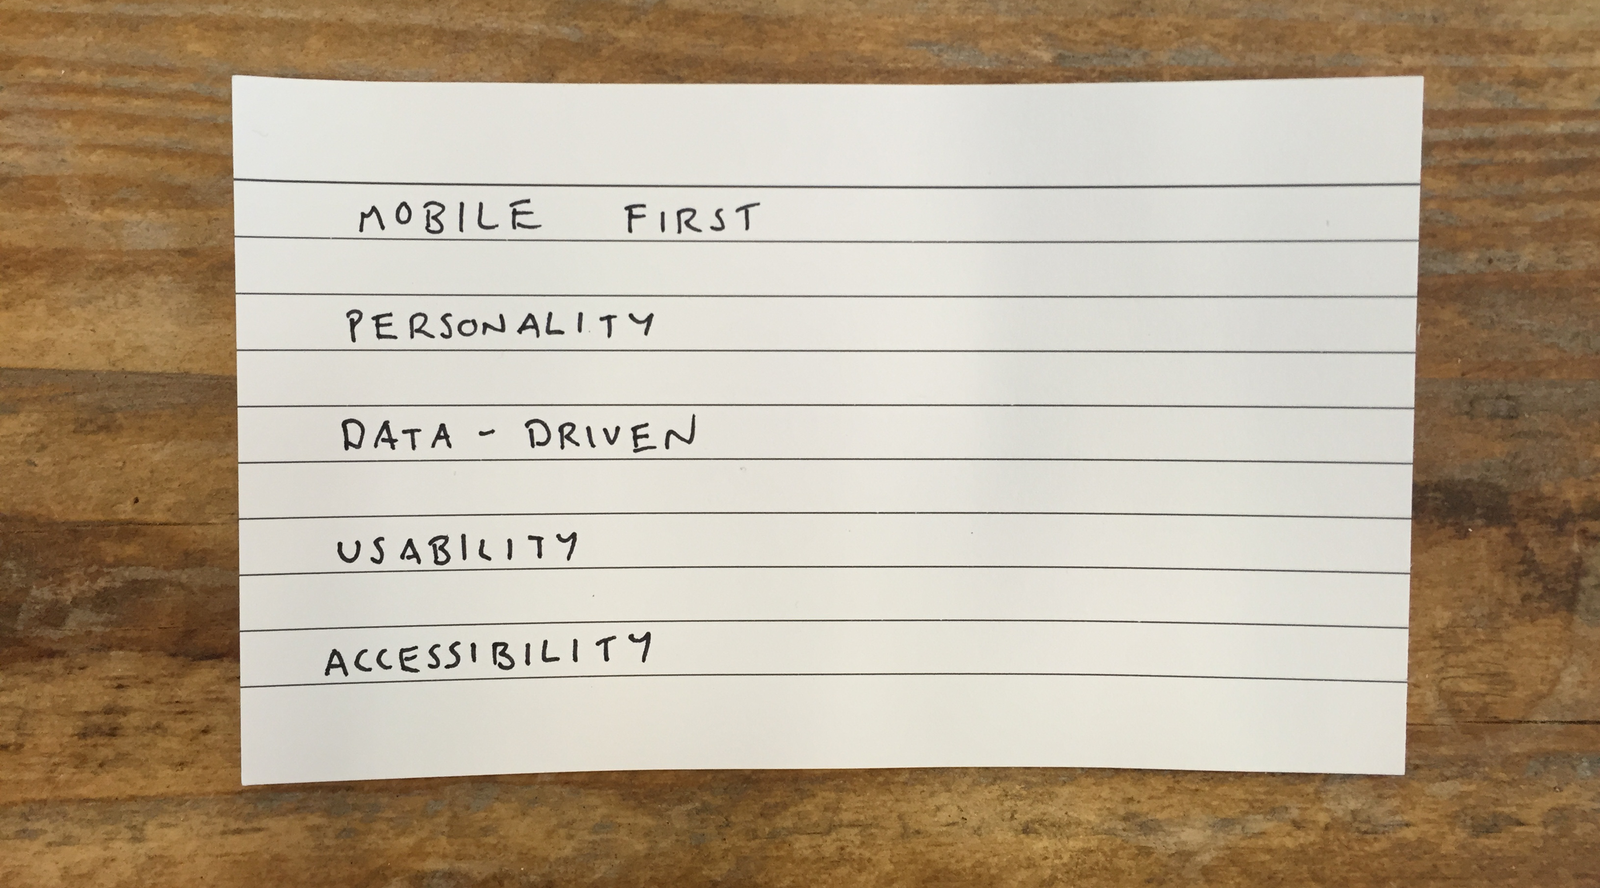 MOBILE FIRST
PERSONALITY
DATA - DRIVEN
USABILITY
ACCESSIBILITY